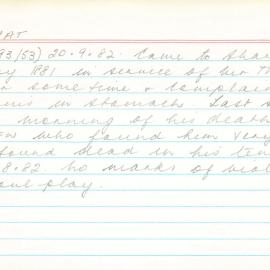 HAT
93/53) 20.9.82. Came to Shar
y 1881 in service of Mr. Th
some time & complain
ins in stomach. Last s
morning of his death
ew who found him very
found dead in his ten
8.82. No marks of viol
oul play.